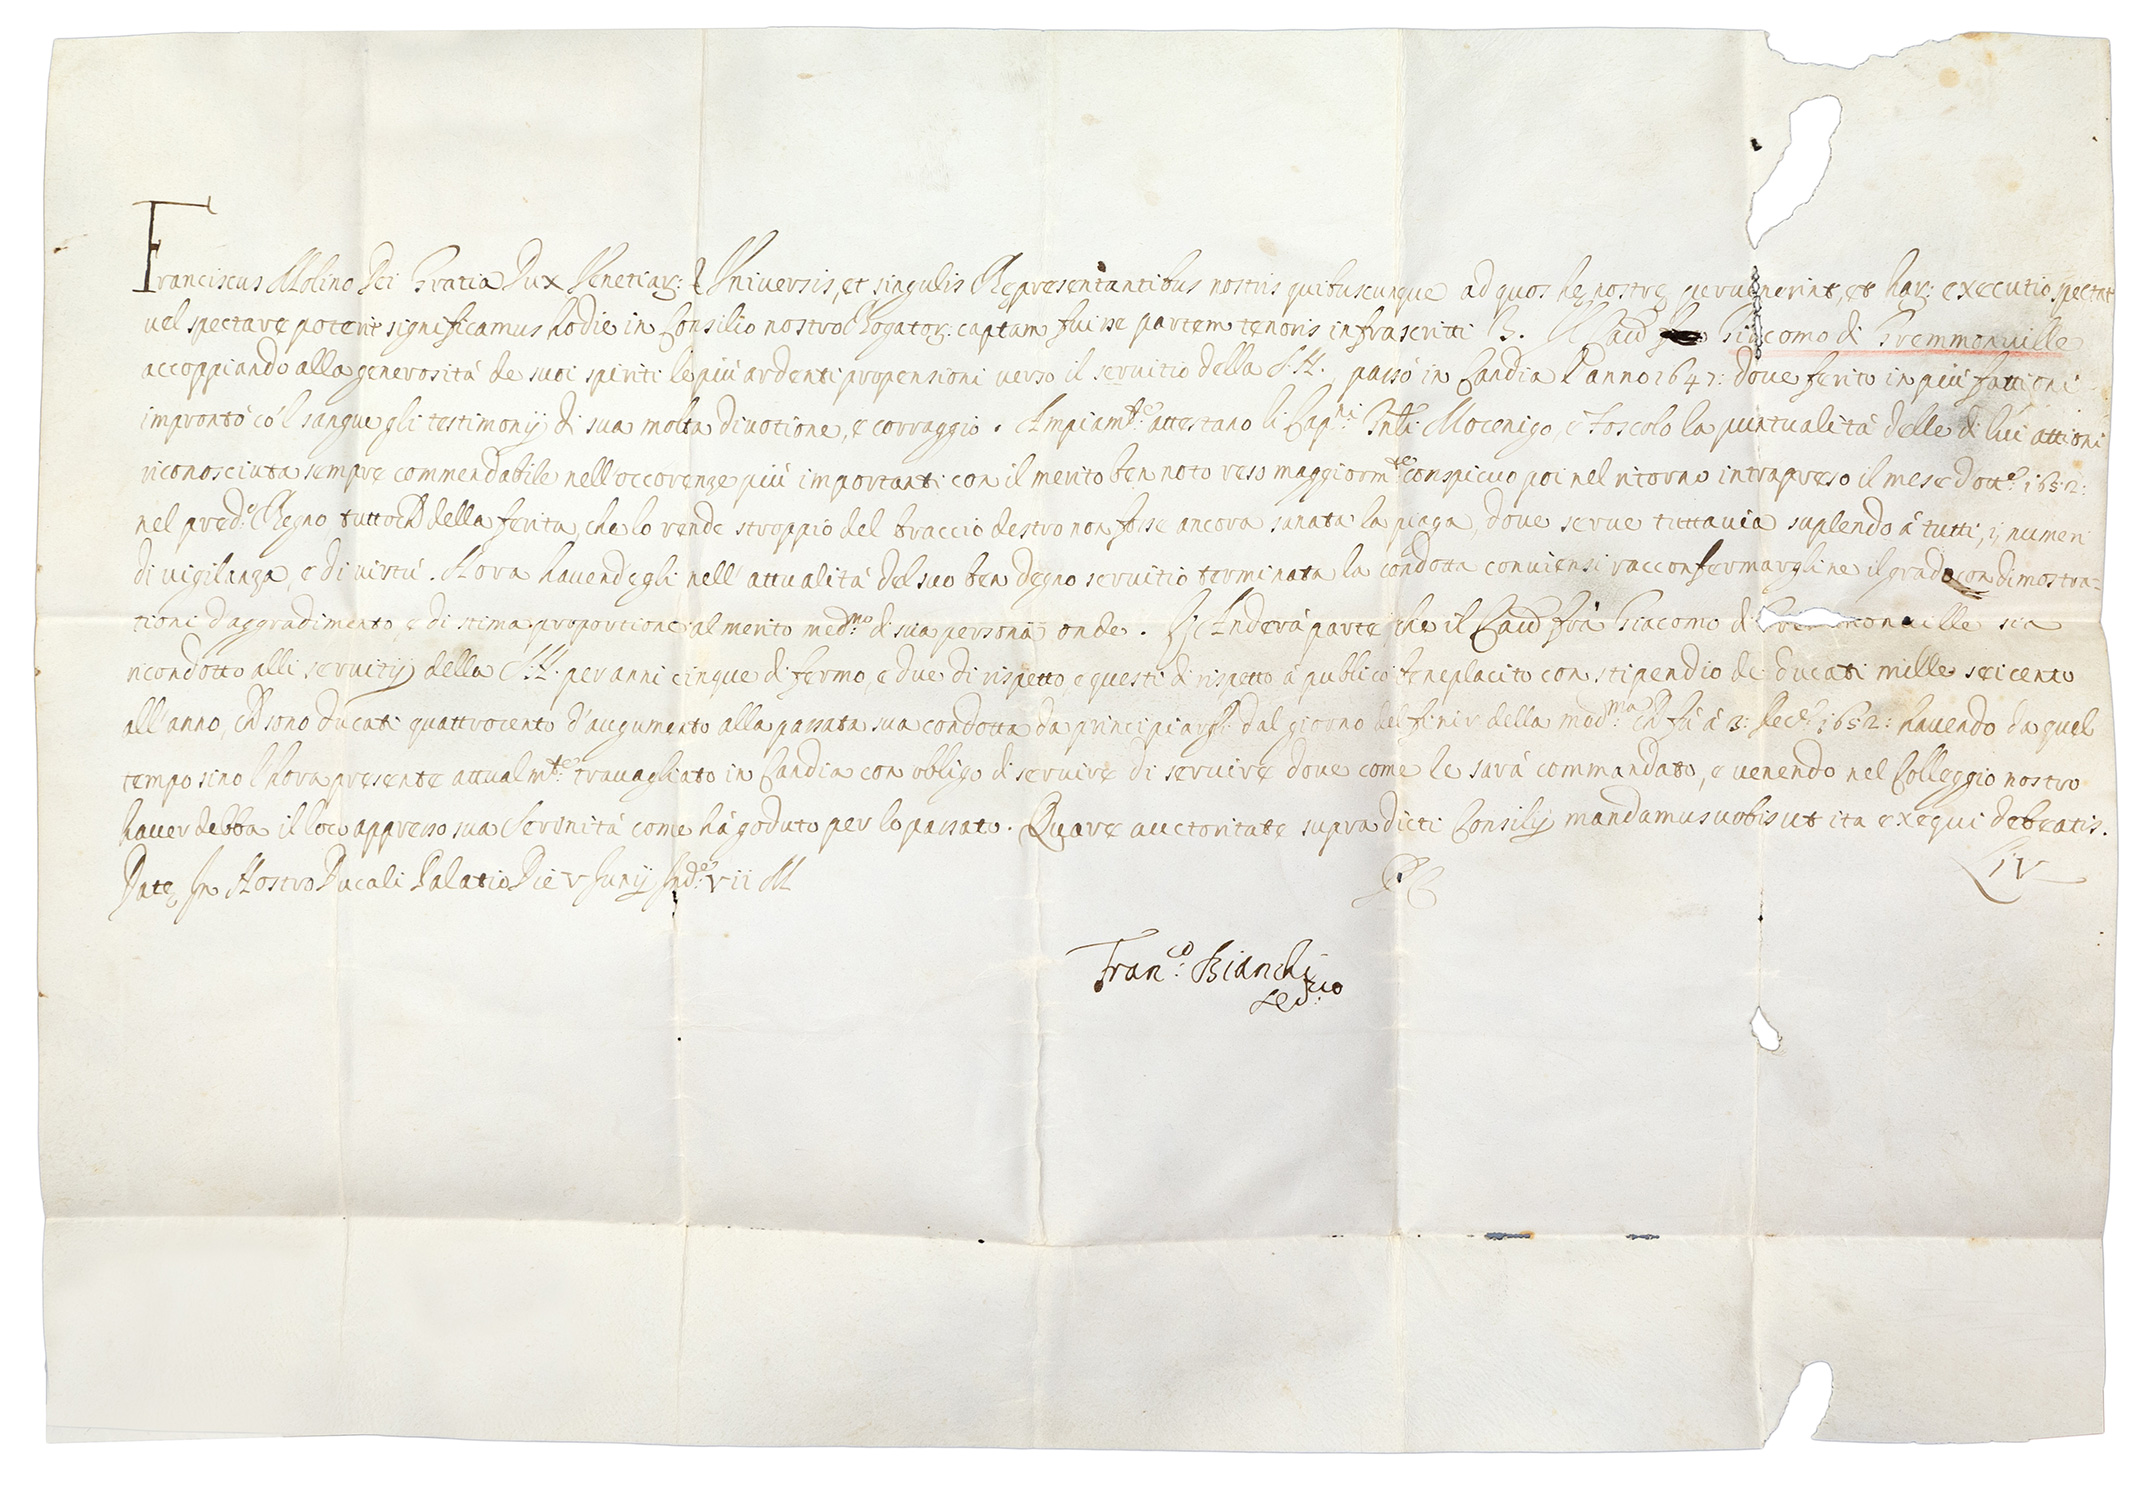 Franciscus Molino Dei Gratia Dux Venetiar: & Universis, et singulis Repręsentantibus nostris quibuscunque ad quos hę nostrę pervenerint, et har: executio spectat
vel spectarę poterit significamus hodie in Consilio nostro Rogator: captam fuisse partem tenoris infrascritti V. Il Cavr Giacomo di Gremmonville
accoppiando alla generosità de suoi spiriti le più ardenti propensioni verso il servitio della S.N., passò in Candia l'anno 1647: dove ferito in più fattioni
improntò co'l sangue gli testimonij di sua molta divotione, e corraggio. Ampiamte: attestano li Capni: Mocenigo, e Foscolo la puntualità delle di lui attioni
riconosciuta sempre commendabile nell'occorenze più importanti con il merito ben noto reso maggiormte: conspicuo poi nel ritorno intrapreso il mese d'otte: 1652:
nel pred:o Regno tuttoch della ferita, che lo rende stroppio del braccio destro non fosse ancora sanata la piaga, dove serve tuttavia suplendo à tutti, i numeri
di vigilanza, e di virtù. Hora havend'egli nell'attualità del suo ben degno servitio terminata la condotta conviensi racconfermargline il grado con dimostra=
tioni d'aggradimento, e di stima proportione al merito medmo: di sua persona onde. L'Anderà parte, che il Cavr frà Giacomo di Gremmonville sia
ricondotto alli servitij della S.N. per anni cinque di fermo, e due di rispetto, e questi di rispetto à publico beneplacito con stipendio de ducati mille seicento
all'anno, ch sono ducati quattrocento d'augumento alla passata sua condotta da principiarsi dal giorno del finir della medma: ch fù à 3: Xec: 1652: havendo da quel
tempo sino l'hora presente attualmte: travagliato in Candia con obligo di servire di servire dove come le sarà commandato, e venendo nel Colleggio nostro
haver debba il loco appresso sua Serenità come hà goduto per lo passato. Quare auctoritate supradicti Consilij mandamus vobis ut ita exequi debeatis.
Datę In Nostro Ducali Palatio Die V Junij Inde: VII M LIV
Franco: Bianchi
Sedrio